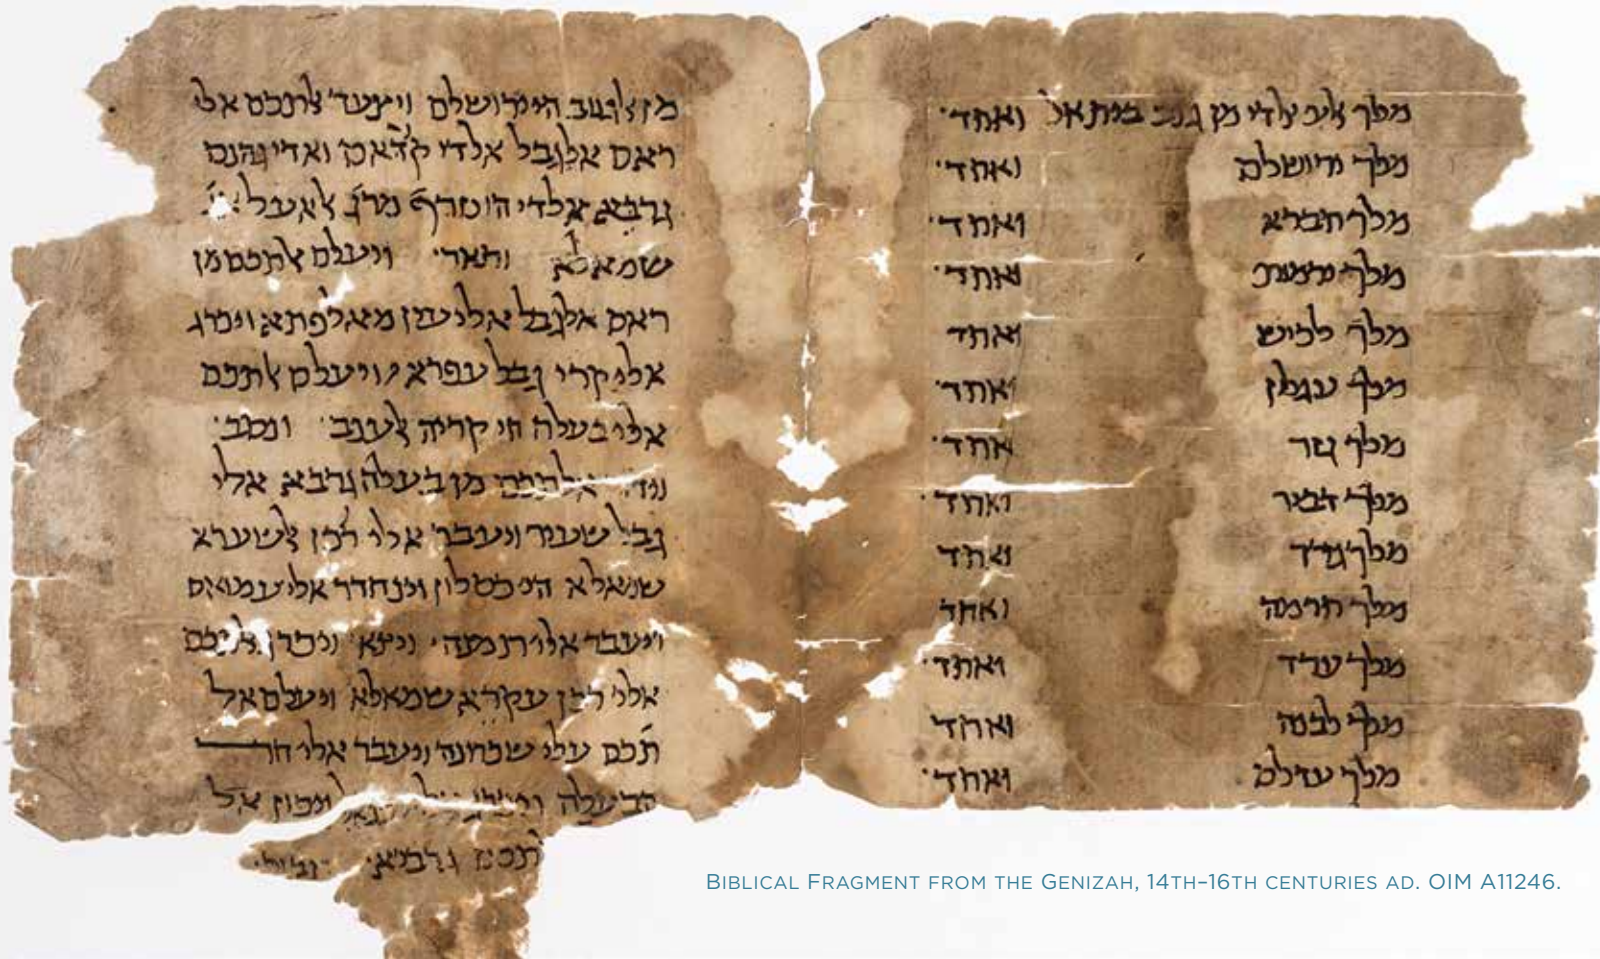 מלך אלעי אלדי מן גנב בית אל ואחד·
מלך ירושלם ואחד·
מלך חברא ואחד·
מלך ירמות ואחד·
מלך לכיש ואחד
מלך עגלון ואחד·
מלך גזר ואחד·
מלך דביר ואחד·
מלך גדר ואחד
מלך חרמה ואחד
מלך ערד ואחד·
מלך לבנה ואחד
מלך עדלם ואחד·
הי ירושלם ויצעד אלתכם אלי
ראס אלגבל אלדי קדאם ואדי גהנם
גרבא אלדי הו טרף מרג
שמאלא ותאר· ויעלם אלתכם מן
ראס אלגבל אלי עין מא לפתא ויכרג
אלי קרי גבל עפרא ויעלם אלתכם
אלי בעלה הי קריה אלענב
אלתכם מן בעלה גרבא אלי
גבל שעיר ויעבר אלי רכן אלשערא
שמאלא הי כסלון וינחדר אלי
ויעבר אלי אלתכם
אלי רכן עקרא שמאלא ויעלם אל
תכם עלי ויעבר אלי הר
הבעלה ויכון אל
תכם גרביא·
BIBLICAL FRAGMENT FROM THE GENIZAH, 14TH–16TH CENTURIES AD. OIM A11246.